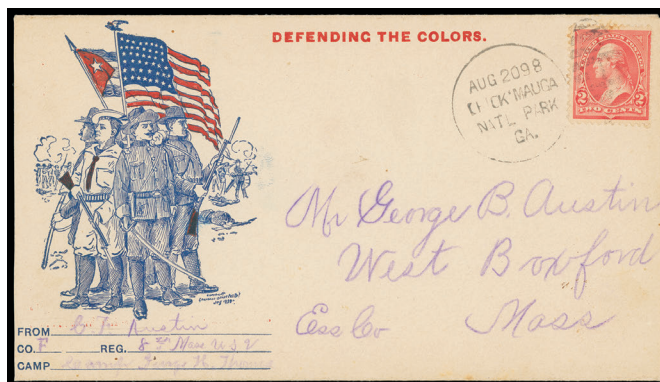 DEFENDING THE COLORS.
AUG 20 98
CHICK'MAUGA
NAT'L PARK
GA.
UNITED STATES POSTAGE
2 2
TWO CENTS
Mr George B. Austin
West Boxford
Ess Co Mass
FROM Austin
CO. F REG. 8th Mass U S V
CAMP Camp George H. Thomas